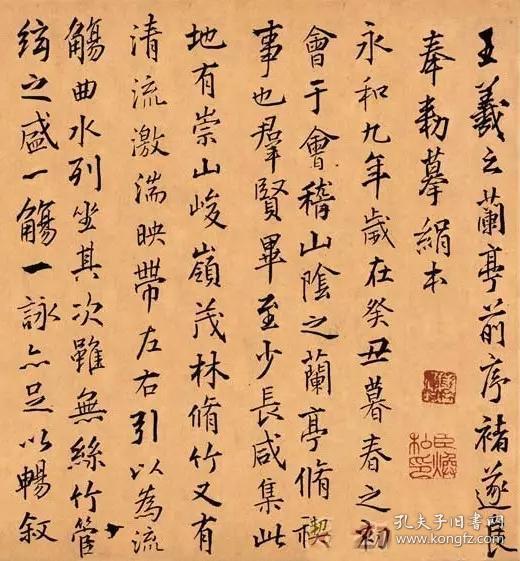 王羲之蘭亭前序褚遂良
奉勅摹絹本
永和九年歲在癸丑暮春之初
會于會稽山陰之蘭亭脩禊
事也羣賢畢至少長咸集此
地有崇山峻嶺茂林脩竹又有
清流激湍映帶左右引以為流
觴曲水列坐其次雖無絲竹管
絃之盛一觴一詠亦足以暢叙
孔夫子旧书网
www.kongfz.com